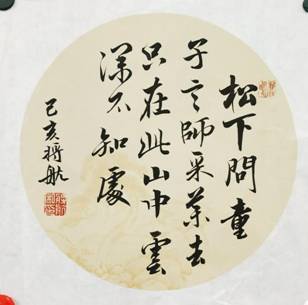 松下問童
子言師采藥去
只在此山中雲
深不知處
己亥将航